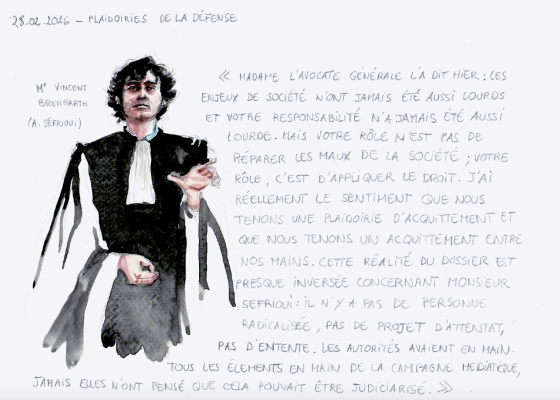 28.02.2026 – PLAIDOIRIES DE LA DÉFENSE
Me VINCENT
BRENGARTH
(A. SEFRIOUI)
« MADAME L'AVOCATE GÉNÉRALE L'A DIT HIER : LES
ENJEUX DE SOCIÉTÉ N'ONT JAMAIS ÉTÉ AUSSI LOURDS
ET VOTRE RESPONSABILITÉ N'A JAMAIS ÉTÉ AUSSI
LOURDE. MAIS VOTRE RÔLE N'EST PAS DE
RÉPARER LES MAUX DE LA SOCIÉTÉ ; VOTRE
RÔLE, C'EST D'APPLIQUER LE DROIT. J'AI
RÉELLEMENT LE SENTIMENT QUE NOUS
TENONS UNE PLAIDOIRIE D'ACQUITTEMENT ET
QUE NOUS TENONS UN ACQUITTEMENT ENTRE
NOS MAINS. CETTE RÉALITÉ DU DOSSIER EST
PRESQUE INVERSÉE CONCERNANT MONSIEUR
SEFRIOUI : IL N'Y A PAS DE PERSONNE
RADICALISÉE, PAS DE PROJET D'ATTENTAT,
PAS D'ENTENTE. LES AUTORITÉS AVAIENT EN MAIN
TOUS LES ÉLEMENTS EN MAIN DE LA CAMPAGNE MÉDIATIQUE,
JAMAIS ELLES N'ONT PENSÉ QUE CELA POUVAIT ÊTRE JUDICIARISÉ. »